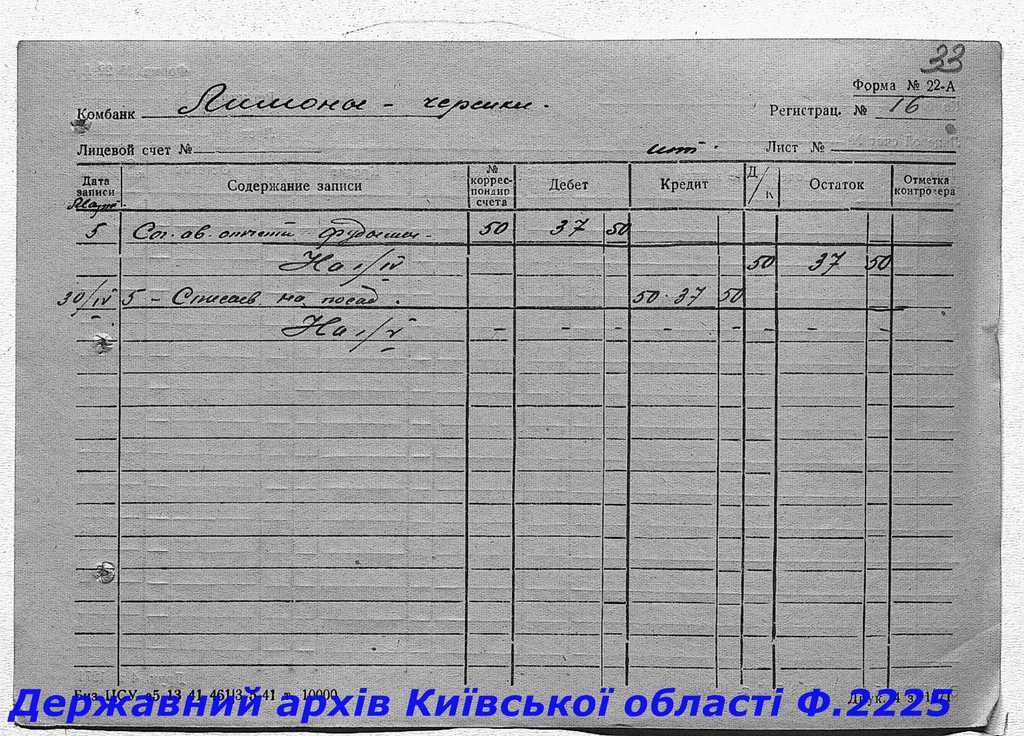 33
Форма № 22-А
Комбанк Лимоны - черенки.
Регистрац. № 16
Лицевой счет №
шт. Лист №
Дата записи Содержание записи № коррес-пондир счета Дебет Кредит Д/К Остаток Отметка контролера
Март.
5 Сог. ав. отчета 50 37 50
На 1/IV 50 37 50
30/IV 5 - Списаев на посад. 50 37 50
На 1/V - - - - - - - -
Биз ЦСУ 13 41 461 3 5 41 т. 10000
Друк.
Державний архів Київської області Ф.2225